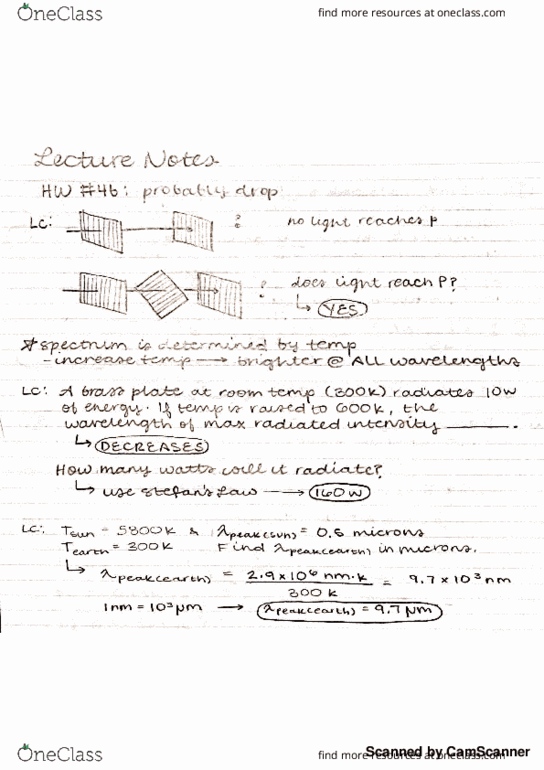 OneClass
find more resources at oneclass.com
Lecture Notes
HW #46: probably drop
LC:
?
no light reaches P
?
does light reach P?
↳ YES
* spectrum is determined by temp
- increase temp → brighter @ ALL wavelengths
LC: A brass plate at room temp (300K) radiates 10W
of energy. If temp is raised to 600K, the
wavelength of max radiated intensity ______.
↳ DECREASES
How many watts will it radiate?
↳ use Stefan's Law → 160W
LC: Tsun = 5800K & λpeak(sun) = 0.5 microns
Tearth = 300K Find λpeak(earth) in microns.
↳ λpeak(earth) = 2.9 x 10⁶ nm·K / 300K = 9.7 x 10³ nm
1nm = 10³ μm → λpeak(earth) = 9.7 μm
OneClass
find more resources at oneclass.com
Scanned by CamScanner